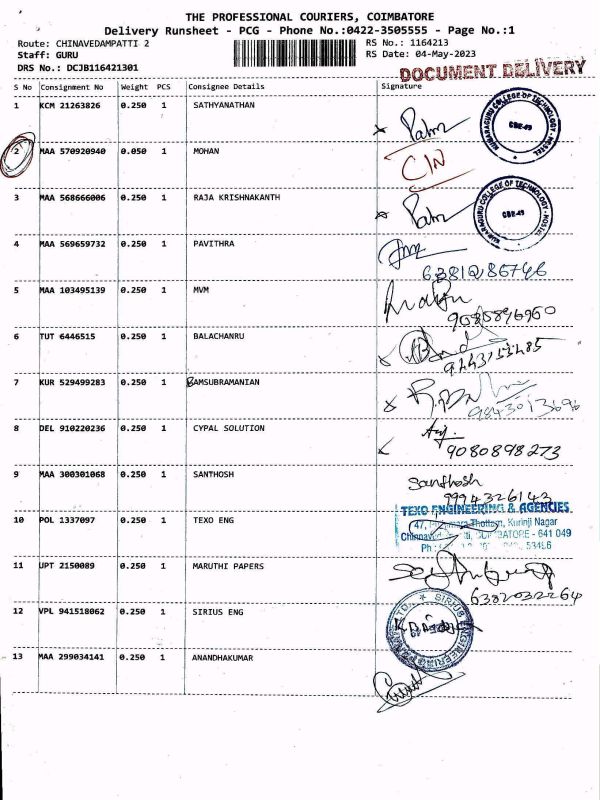 THE PROFESSIONAL COURIERS, COIMBATORE
Delivery Runsheet - PCG - Phone No.:0422-3505555 - Page No.:1
Route: CHINAVEDAMPATTI 2 RS No.: 1164213
Staff: GURU RS Date: 04-May-2023
DRS No.: DCJB116421301 DOCUMENT DELIVERY
S No Consignment No Weight PCS Consignee Details Signature
1 KCM 21263826 0.250 1 SATHYANATHAN
KUMARAGURU COLLEGE OF TECHNOLOGY-HOSTEL CBE-49
2 MAA 570920940 0.050 1 MOHAN
3 MAA 568666006 0.250 1 RAJA KRISHNAKANTH
KUMARAGURU COLLEGE OF TECHNOLOGY-HOSTEL CBE-49
4 MAA 569659732 0.250 1 PAVITHRA
5 MAA 103495139 0.250 1 MVM
6 TUT 6446515 0.250 1 BALACHANRU
7 KUR 529499283 0.250 1 RAMSUBRAMANIAN
9843013696
8 DEL 910220236 0.250 1 CYPAL SOLUTION
9080898273
9 MAA 300301068 0.250 1 SANTHOSH
Santhosh
9994326143
10 POL 1337097 0.250 1 TEXO ENG
TEXO ENGINEERING & AGENCIES
47, Thottam, Kurinji Nagar
COIMBATORE - 641 049
11 UPT 2150089 0.250 1 MARUTHI PAPERS
6382032264
12 VPL 941518062 0.250 1 SIRIUS ENG
SIRIUS ENGINEERING
13 MAA 299034141 0.250 1 ANANDHAKUMAR